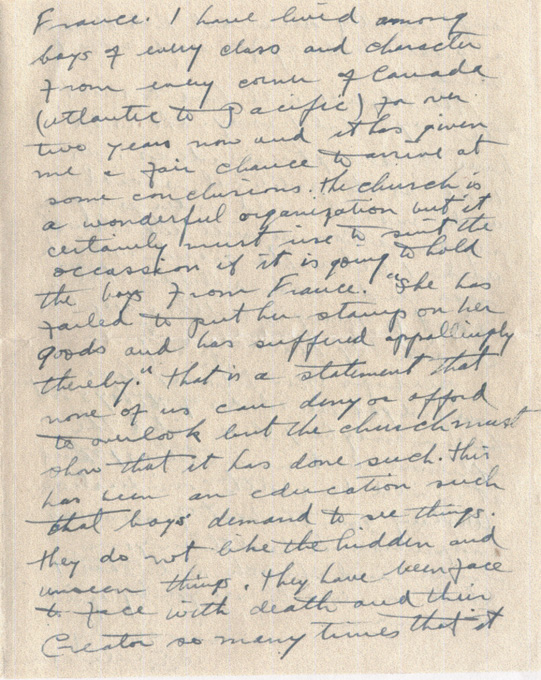 France. I have lived among
boys of every class and character
from every corner of Canada
(Atlantic to Pacific) for over
two years now and it has given
me a fair chance to arrive at
some conclusions. The church is
a wonderful organization but it
certainly must rise to suit the
occassion if it is going to hold
the boys from France. "She has
failed to put her stamp on her
goods and has suffered appallingly
thereby." That is a statement that
none of us can deny or afford
to overlook but the church must
show that it has done such. This
has been an education such
that boys' demand to see things.
They do not like the hidden and
unseen things. They have been face
to face with death and their
Creator so many times that it